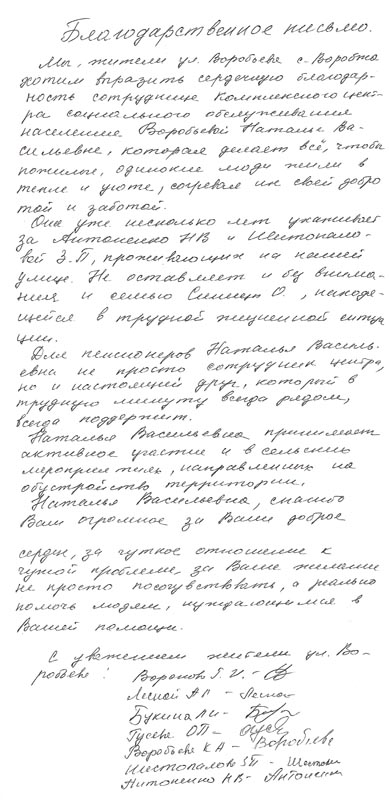 Благодарственное письмо.
Мы, жители ул. Воробьева с. Воробжа
хотим выразить сердечную благодар-
ность сотруднице Комплексного цент-
ра социального обслуживания
населения Воробьевой Наталье Ва-
сильевне, которая делает всё, чтобы
пожилые, одинокие люди жили в
тепле и уюте, согревая их своей добро
той и заботой.
Она уже несколько лет ухаживает
за Антоненко Н В и Шестопало-
вой З. П, проживающих на нашей
улице. Не оставляет и без внима-
ния и семью О., находя-
щейся в трудной жизненной ситуа
ции.
Для пенсионеров Наталья Василь-
евна не просто сотрудник центра,
но и настоящий друг, который в
трудную минуту всегда рядом,
всегда поддержит.
Наталья Васильевна принимает
активное участие и в сельских
мероприятиях, направленных на
обустройство территории.
Наталья Васильевна, спасибо
Вам огромное за Ваше доброе
сердце, за чуткое отношение к
чужой проблеме за Ваше желание
не просто посочувствовать, а реально
помочь людям, нуждающимся в
Вашей помощи.
С уважением жители ул. Во-
робьева:
Воронов -
Лесной А П -
Букина Л и -
Гусева О П -
Воробьева К А - Воробьева
Шестопалова З П -
Антоненко Н В - Антоненко